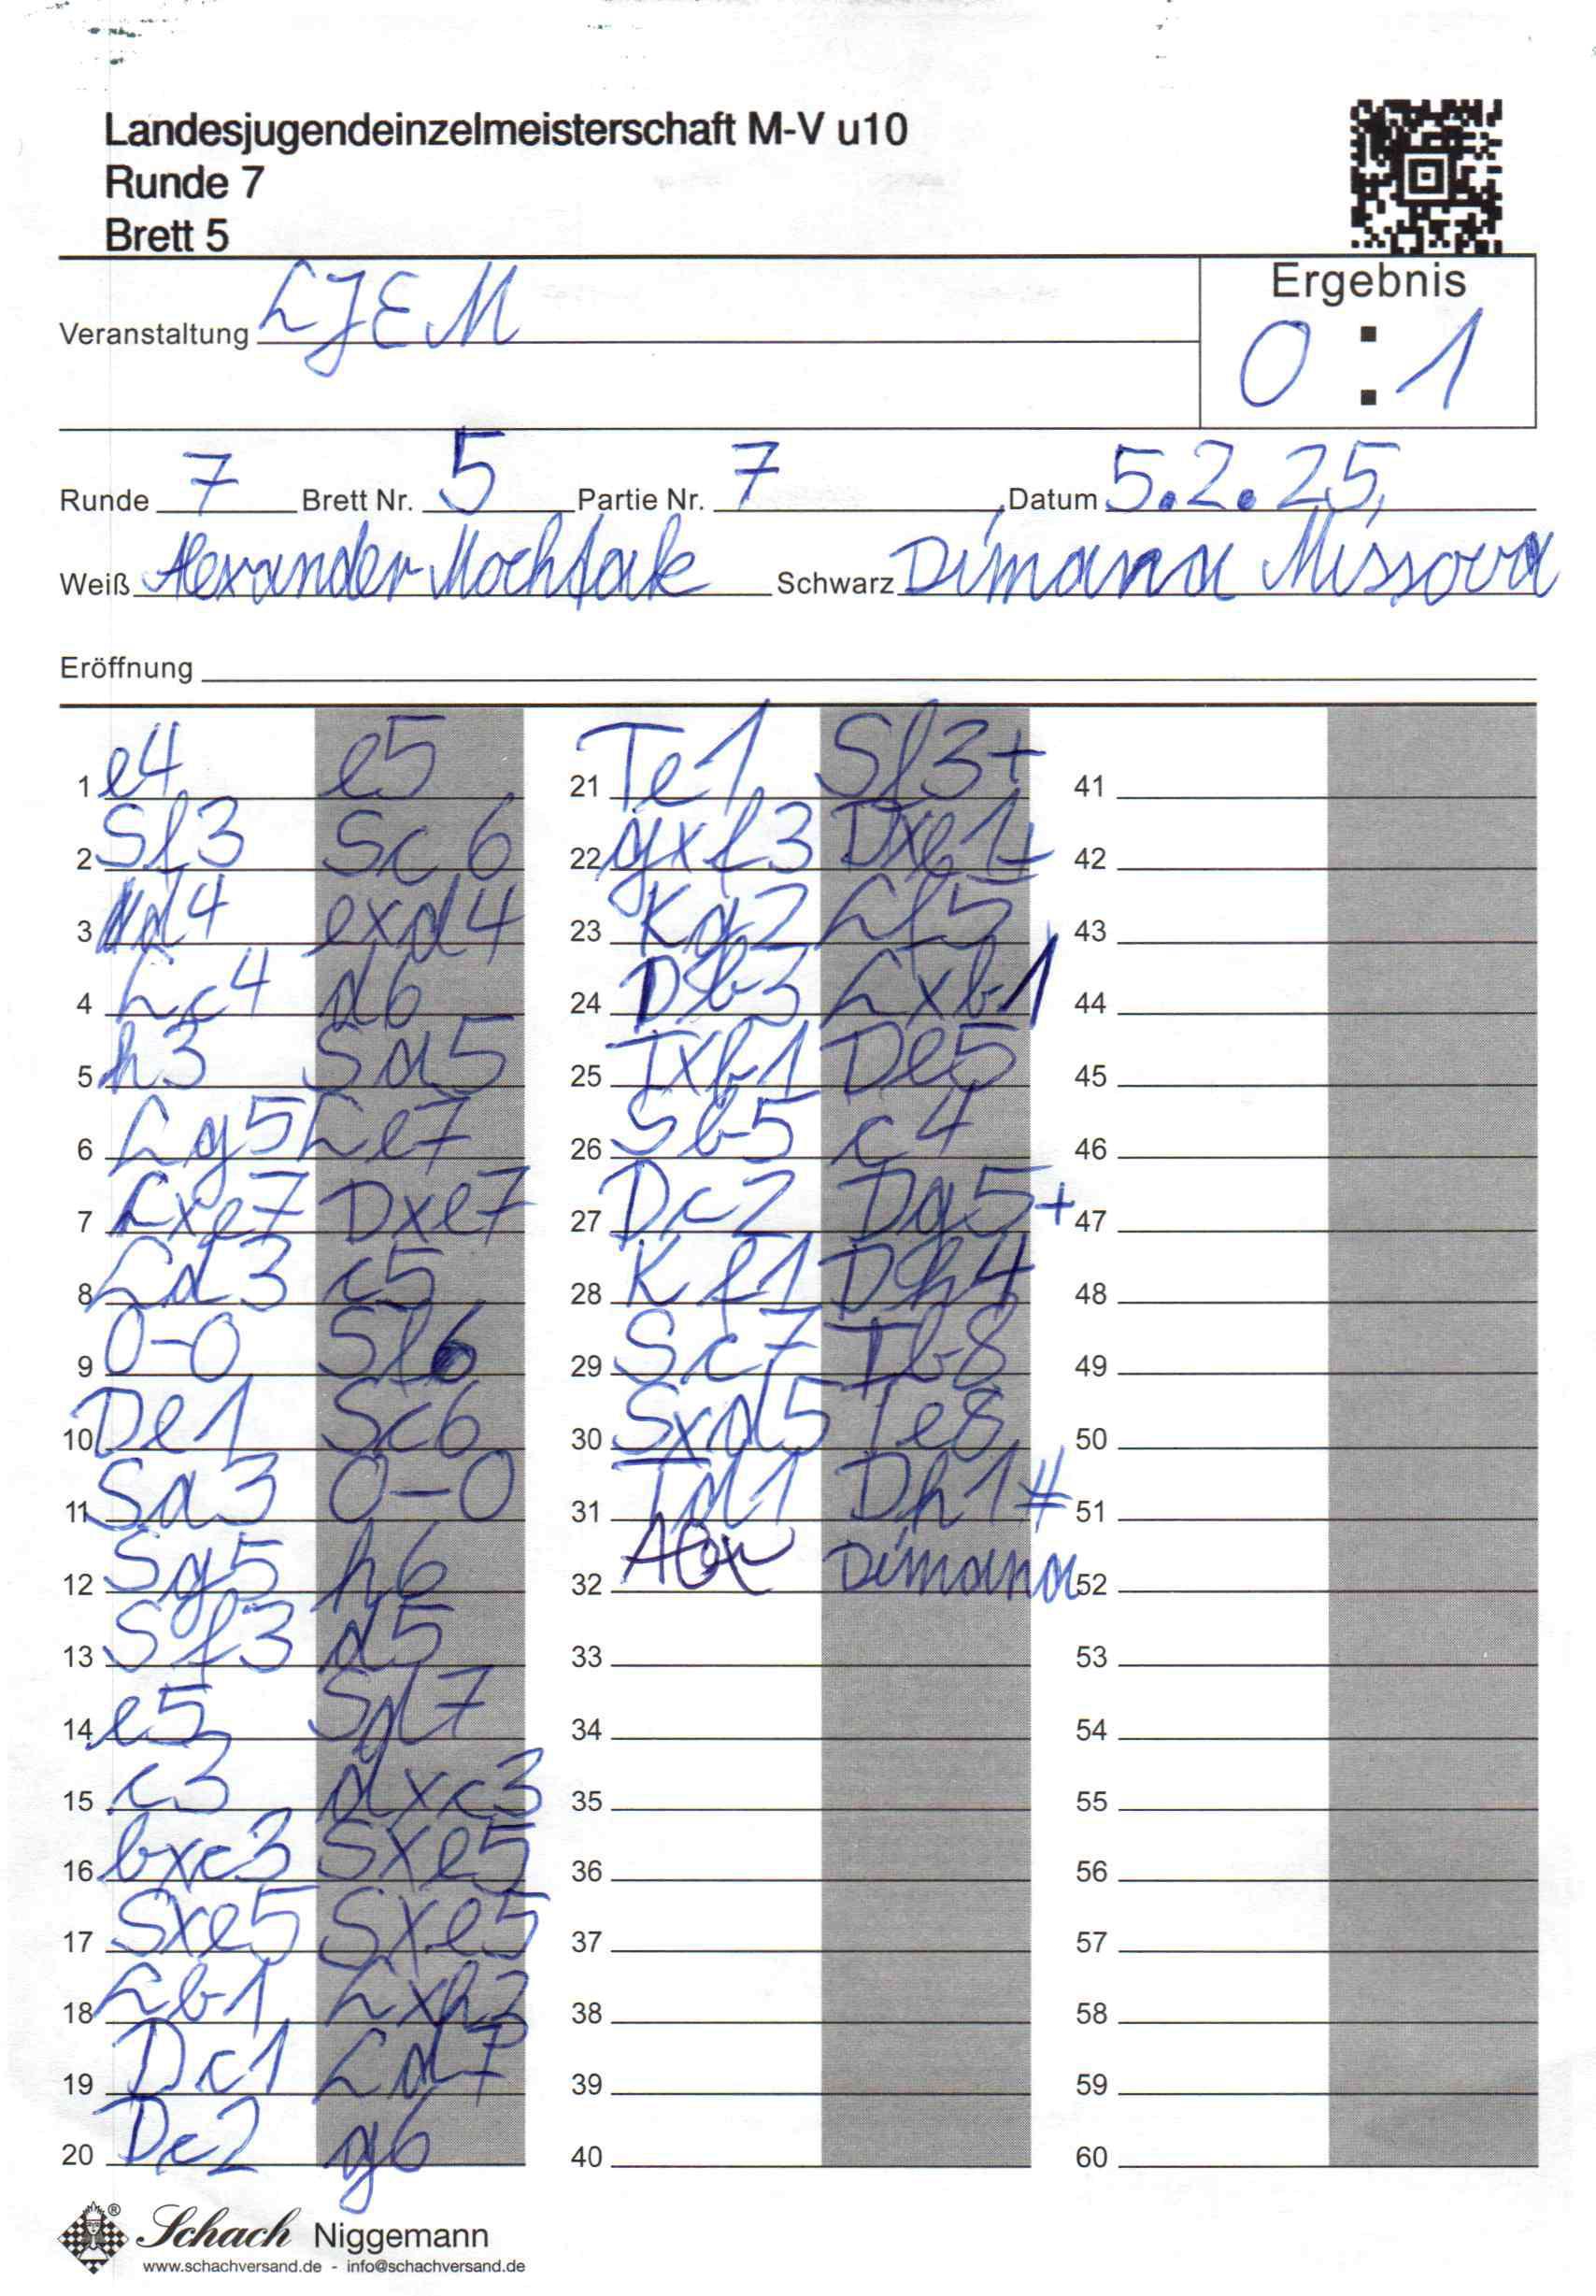 Landesjugendeinzelmeisterschaft M-V u10
Runde 7
Brett 5
Ergebnis
Veranstaltung LJEM
0 : 1
Runde 7 Brett Nr. 5 Partie Nr. 7 Datum 5.2.25
Weiß Alexander Mochtak Schwarz Dimana Missova
Eröffnung
1 e4 e5
2 Sf3 Sc6
3 d4 exd4
4 Lc4 d6
5 h3 Sa5
6 Lg5 Le7
7 Lxe7 Dxe7
8 Ld3 c5
9 0-0 Sf6
10 De1 Sc6
11 Sa3 0-0
12 Sg5 h6
13 Sf3 d5
14 e5 Sd7
15 c3 dxc3
16 bxc3 Sxe5
17 Sxe5 Sxe5
18 Lb1 Lxh3
19 Dc1 Ld7
20 Dc2 g6
21 Te1 Sf3+
22 gxf3 Dxe1+
23 Kg2 Lf5
24 Db3 Lxb1
25 Txb1 De5
26 Sb5 c4
27 Dc2 Dg5+
28 Kf1 Dh4
29 Sc7 Tb8
30 Sxd5 Te8
31 Td1 Dh1#
32 Alex Dimana
33
34
35
36
37
38
39
40
41
42
43
44
45
46
47
48
49
50
51
52
53
54
55
56
57
58
59
60
Schach Niggemann
www.schachversand.de - info@schachversand.de